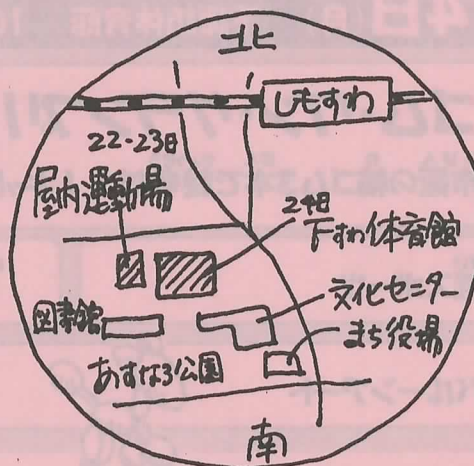 北
しもすわ
22-23日
屋内運動場
24日
下すわ体育館
文化センター
図書館
まち役場
あすなろ公園
南